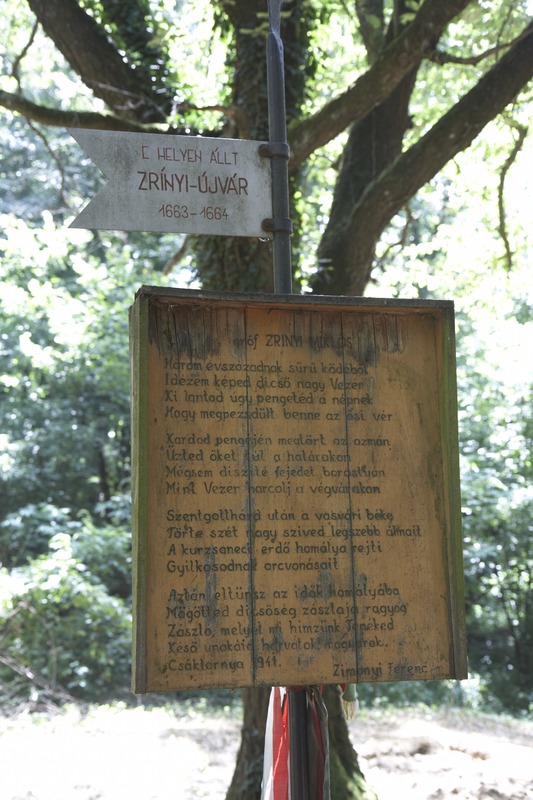 E HELYEN ÁLLT
ZRÍNYI-ÚJVÁR
1663-1664
gróf ZRINYI MIKLÓS
Három évszázadnak sűrü ködéből
Idézem képed dicső nagy Vezér
Ki lantod úgy pengetéd a népnek
Hogy megpezsdült benne az ősi vér
Kardod pengéjén megtört az ozmán
Üzted őket túl a határokon
Mégsem diszíté fejedet borostyán
Mint Vezér harcolj a végvárakon
Szentgotthárd után a vasvári béke
Törte szét nagy szived legszebb álmait
A kurzsaneci erdő homálya rejti
Gyilkosodnak arcvonásait
Aztán eltünsz az idők homályába
Mögötted dicsőség zászlaja ragyog
Zászló, melyet mi himzünk Tenéked
Késő unokáid horvátok, magyarok.
Csáktornya 1941. Zimonyi Ferenc